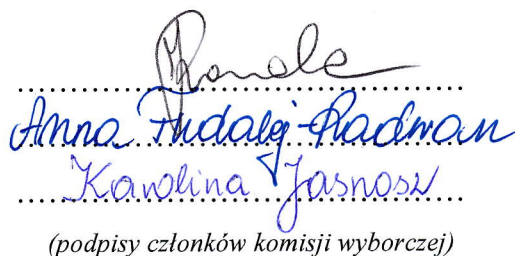 Anna Fudalej-Radwan
Karolina Jasnosz
(podpisy członków komisji wyborczej)